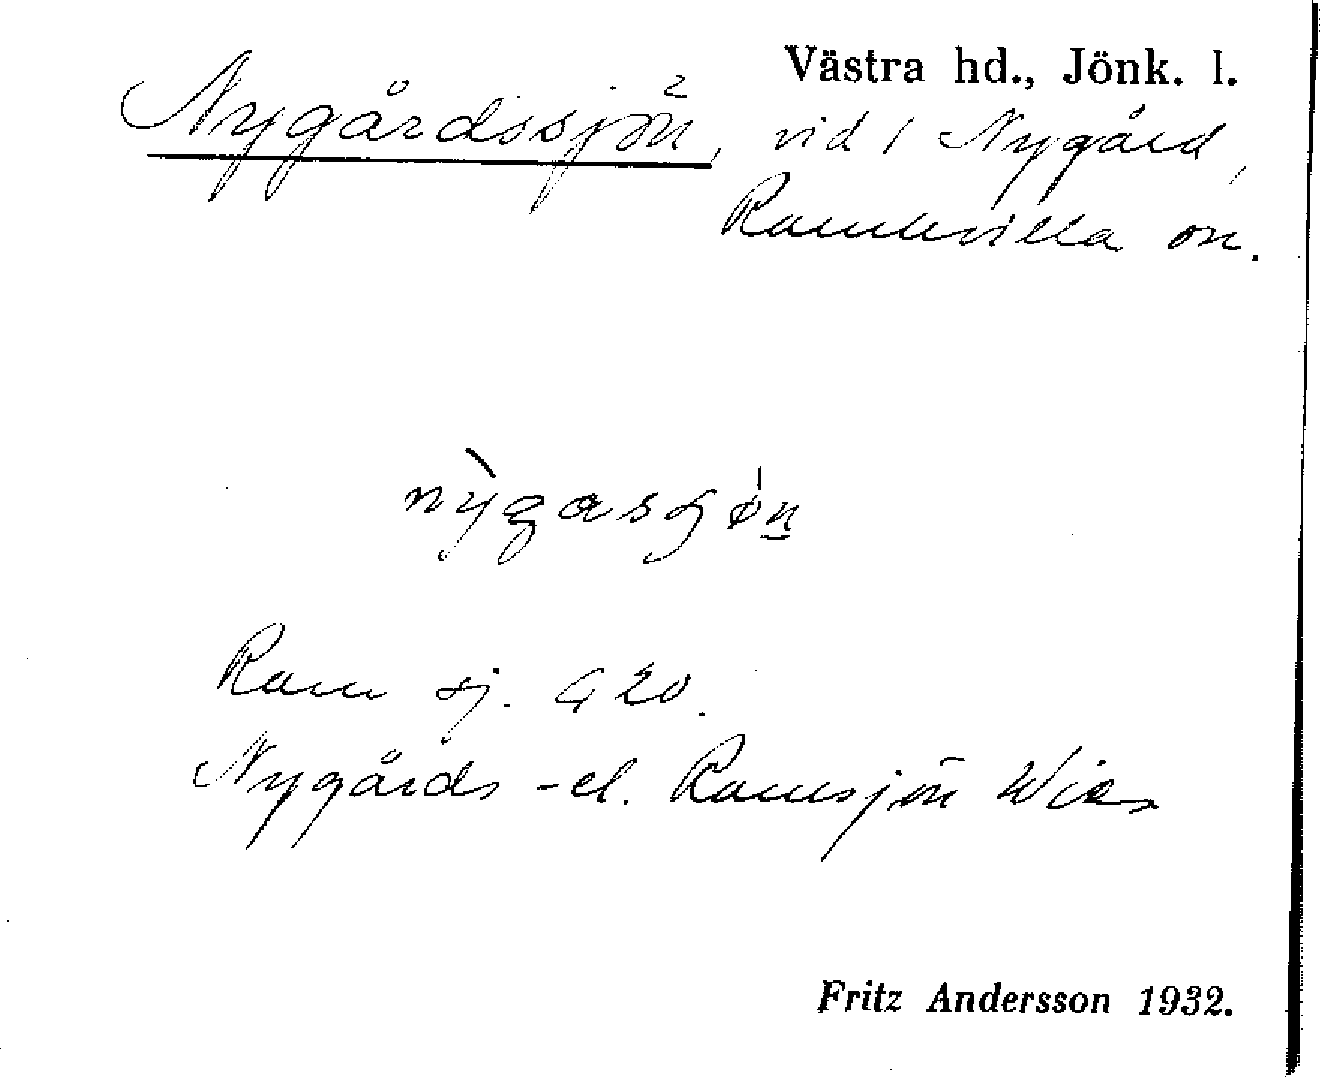 Västra hd., Jönk. l.
Nygårdssjön, vid / Nygård,
Ramkvilla sn.
nỳgasjø̍n
Ram sj. G 20.
Nygårds- el. Ramsjön Wies
Fritz Andersson 1932.